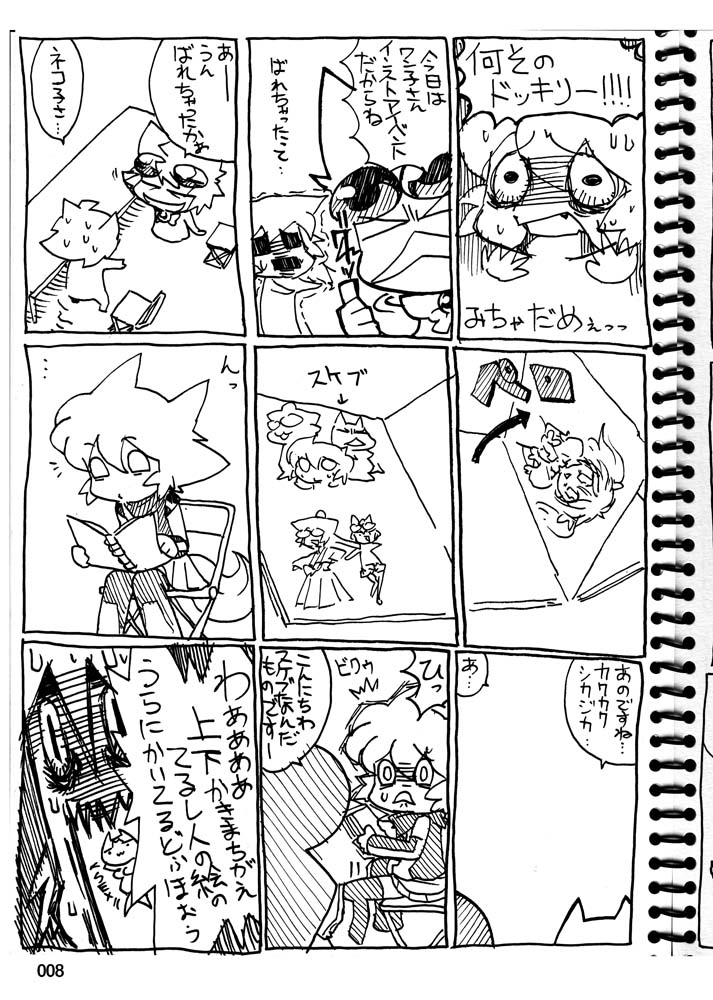 何そのドッキリー!!!!
みちゃだめぇっっ
今日は
ワン子さん
イラストアイベント
だからね
ばれちゃったって…
あー
うん
ばれちゃったかぁ
ネコ子さ…
スケブ
↓
んっ
…
あのですね…
カクカク
シカジカ
あ…
ひっ
ビクゥ
こんにちわ
スケブなんだ
ものですー
!!
わああああ
上下かきまちがえ
てるし人の絵の
うらにかいてるどぶほぉう
008